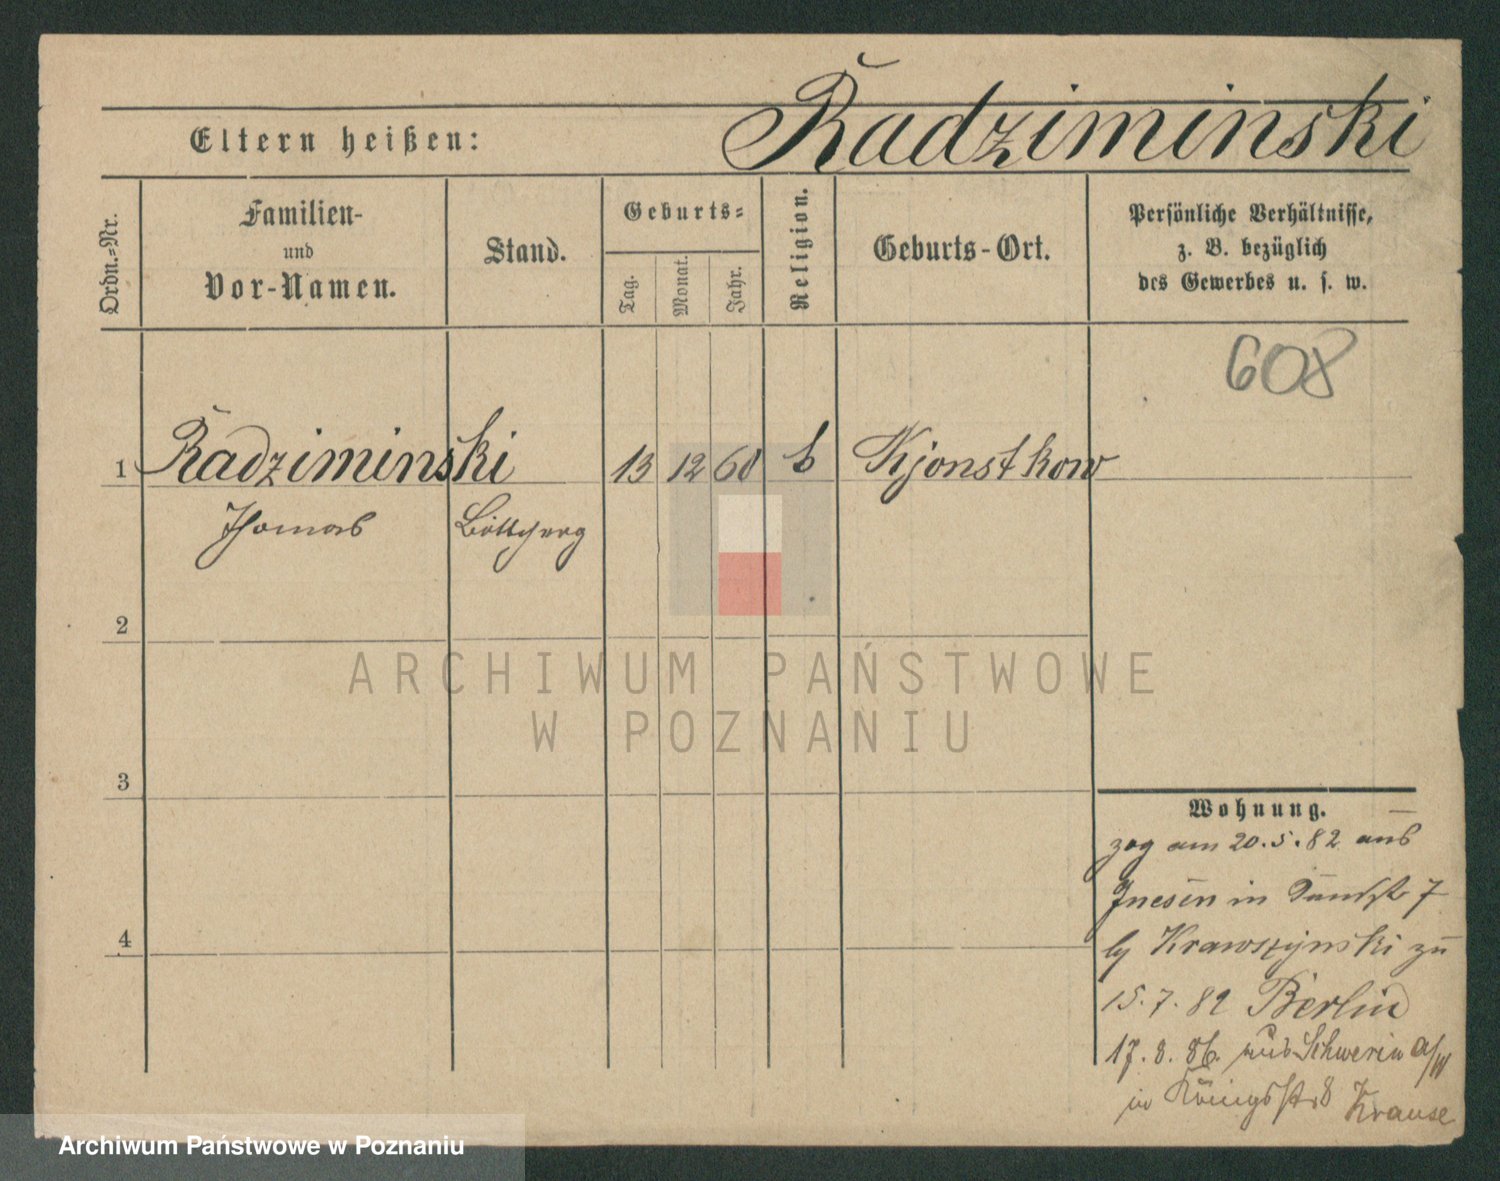 Radziminski
Eltern heißen:
Ordn.-Nr.
Familien-
und
Vor-Namen.
Stand.
Geburts-
Tag.
Monat.
Jahr.
Religion.
Geburts-Ort.
Persönliche Verhältnisse,
z. B. bezüglich
des Gewerbes u. s. w.
608
1 Radziminski 13 12 60 Kjonstkow
Thomas
2
ARCHIWUM PAŃSTWOWE
W POZNANIU
3
Wohnung.
zog am 20.5.82 aus
Gnesen in 7
Krawszynski zu
15.7.82 Berlin
17.8.86. aus Schwerin a/W
in Königsstr 8 Krause
4
Archiwum Państwowe w Poznaniu